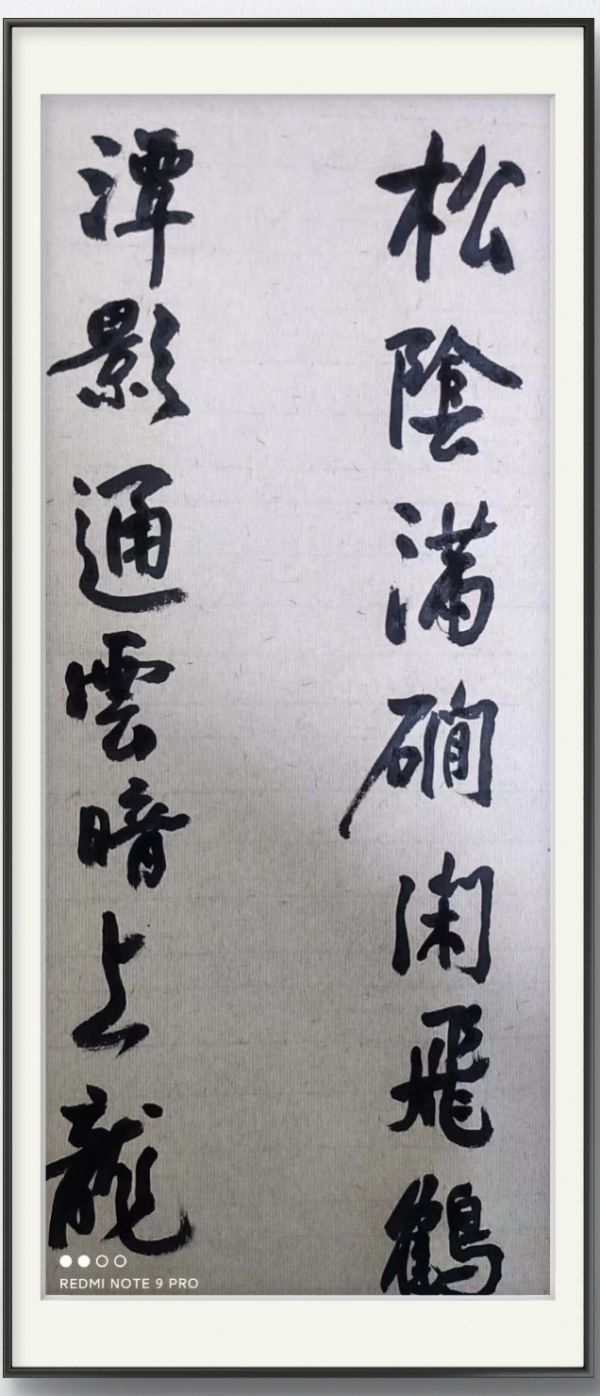 松陰滿磵闲飛鶴
潭影通雲暗上龍
REDMI NOTE 9 PRO